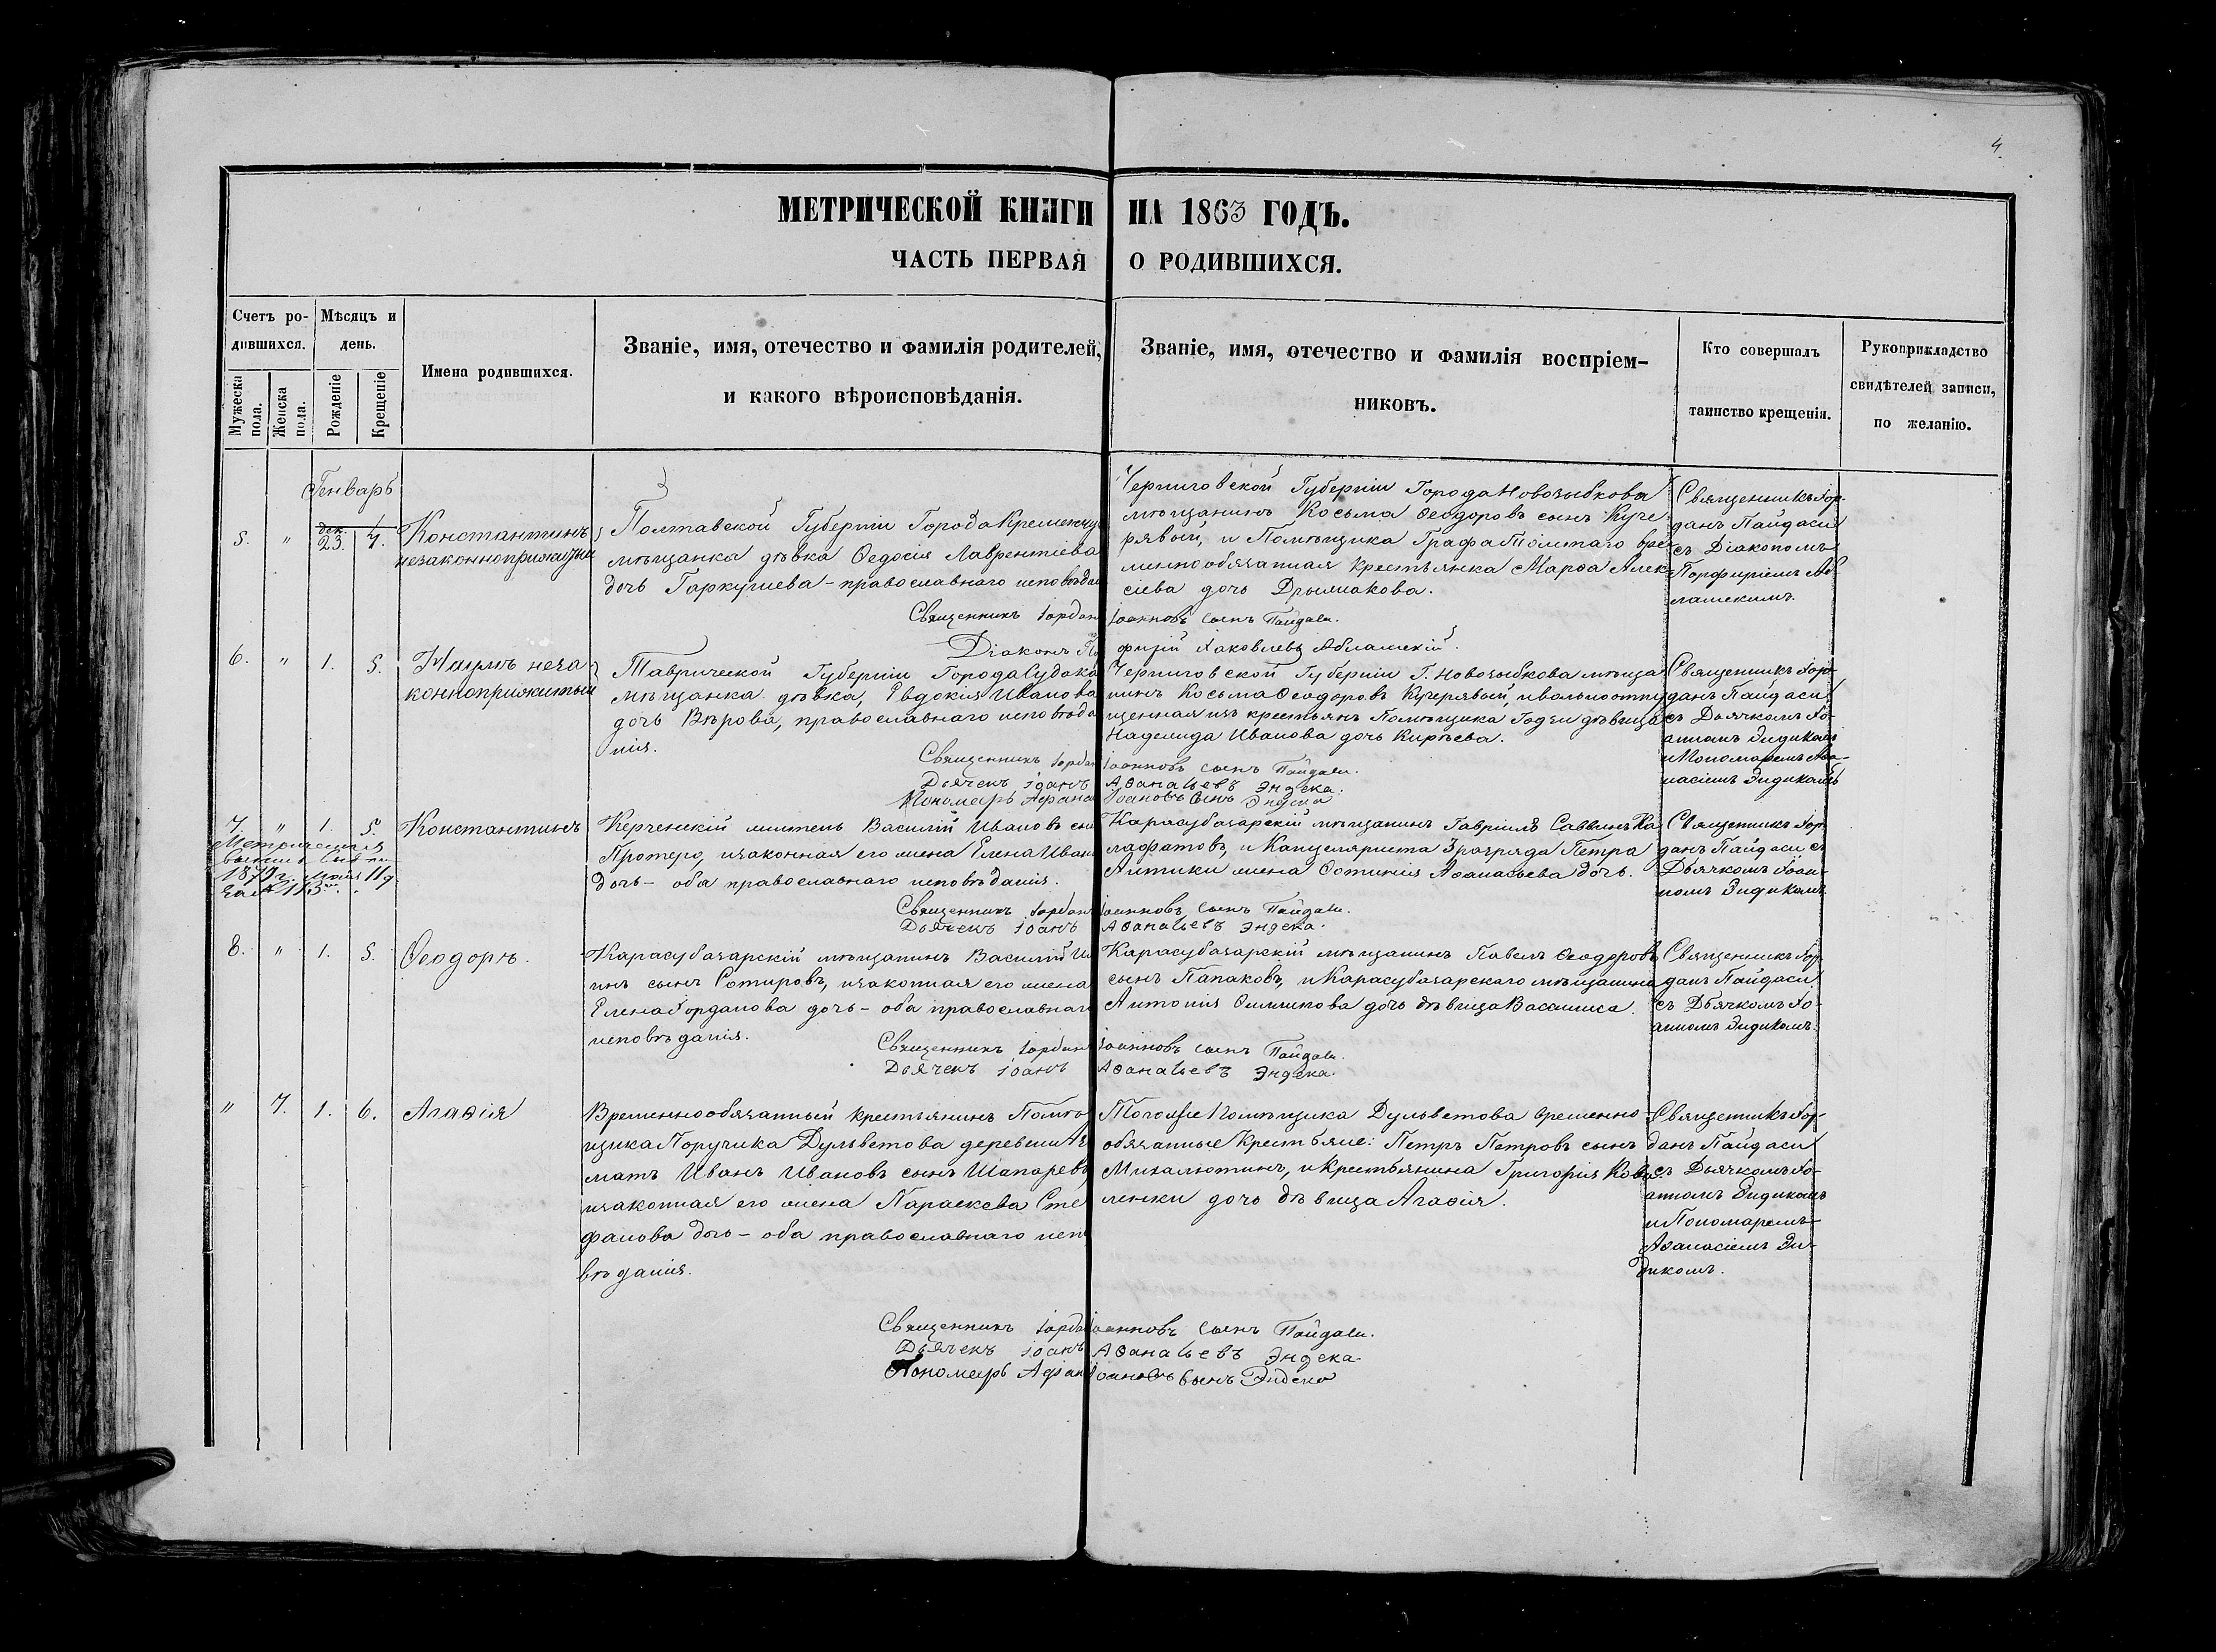 4.
МЕТРИЧЕСКОЙ КНИГИ НА 1863 ГОДЪ.
ЧАСТЬ ПЕРВАЯ О РОДИВШИХСЯ.
Счетъ ро-
дившихся.
Мужеска
пола.
Женска
пола.
Мѣсяцъ и
день.
Рожденіе
Крещеніе
Имена родившихся.
Званіе, имя, отечество и фамилія родителей,
и какого вѣроисповѣданія.
Званіе, имя, отечество и фамилія воспріем-
никовъ.
Кто совершалъ
таинство крещенія.
Рукоприкладство
свидѣтелей записи,
по желанію.
Генварь
5. " дек. 23. 1/4.
Константинъ
незаконноприжитый
Полтавской Губерніи Города Кременчу
мѣщанка дѣвка Ѳедосія Лаврентіева
дочь Гаркушева - православнаго исповѣда
Черниговской Губерніи Города Новозыбкова
мѣщанинъ Косьма Ѳеодоровъ сынъ Куче-
рявый, и Помѣщика Графа Толстаго вре-
меннообязанная крестьянка Марѳа Алек-
сіева дочь
Священникъ Іор-
данъ Пайдаси
съ Діакономъ
Порфиріемъ Аб-
лашскимъ.
Священникъ Іордан Іоанновъ сынъ Пайдаси.
Діаконъ По фирій Іаковлевъ Аблашскій.
6. " 1. 5.
Наумъ неза-
конноприжитый
Таврической Губерніи Города Судака
мѣщанка дѣвка, Евдокія Иванова
дочь Вѣрова, православнаго исповѣда
нія.
Черниговской Губерніи Г. Новозыбкова мѣща-
нинъ Косьма Ѳеодоровъ Кучерявый, и вольноотпу
щенная изъ крестьянъ Помѣщика Годзи дѣвица
Надежда Иванова дочь Кирѣева.
Священникъ Іор-
данъ Пайдаси
съ Дьячкомъ Іо-
анномъ Эндикомъ
и Пономаремъ Аѳа-
насіемъ Эндикомъ
Священникъ Іордан Іоанновъ сынъ Пайдаси.
Дьячекъ Іоанъ Аѳанасьевъ Эндека.
Пономарь Афана Іоановъ сынъ Эндека
7. " 1. 5.
Метрическая
1879 г. Маія 11 д.
за № 113
Константинъ
Керченскій житель Василій Ивановъ сы
Протеро, и законная его жена Елена Иван
дочь - оба православнаго исповѣданія.
Карасубазарскій мѣщанинъ Гавріилъ Саввинъ Ка-
лафатовъ, и Канцеляриста 3 разряда Петра
Антики жена Фотинія Аѳанасьева дочь.
Священникъ Іор-
данъ Пайдаси съ
Дьячкомъ Іоан-
номъ Эндикомъ.
Священникъ Іордан Іоанновъ сынъ Пайдаси.
Дьячекъ Іоанъ Аѳанасьевъ Эндека.
8. " 1. 5.
Ѳеодоръ.
Карасубазарскій мѣщанинъ Василій И
инъ сынъ Сотировъ, и законная его жена
Елена Іорданова дочь - оба православнаг
исповѣданія.
Карасубазарскій мѣщанинъ Павелъ Ѳеодоровъ
сынъ Папаковъ, и Карасубазарскаго мѣщанина
Антонія дочь дѣвица Василиса.
Священникъ Іор-
данъ Пайдаси
съ Дьячкомъ Іо-
анномъ Эндикомъ.
Священникъ Іордан Іоанновъ сынъ Пайдаси.
Дьячекъ Іоанъ Аѳанасьевъ Эндека.
" 7. 1. 6.
Агаѳія
Временнообязанный крестьянинъ Помѣ-
щика Поручика Дульветова деревни
матъ Иванъ Ивановъ сынъ Шапаревъ,
и законная его жена Параскева Сте
фанова дочь - оба православнаго исп
вѣданія.
Того же Помѣщика Дульветова временно-
обязанные Крестьяне: Петръ Петровъ сынъ
Михалютинъ, и Крестьянина Григорія Кова-
ленки дочь дѣвица Агаѳія.
Священникъ Іор-
данъ Пайдаси
съ Дьячкомъ Іо-
анномъ Эндикомъ
и Пономаремъ
Аѳанасіемъ Эн-
дикомъ.
Священникъ Іорда Іоанновъ сынъ Пайдаси.
Дьячекъ Іоанъ Аѳанасьевъ Эндека.
Пономарь Афан Іоановъ сынъ Эндека